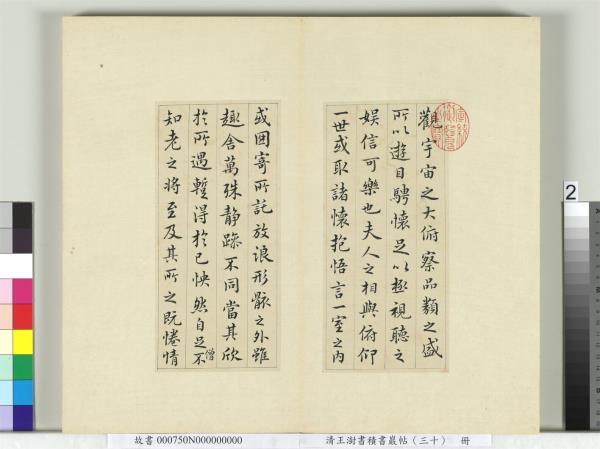 觀宇宙之大俯察品類之盛
所以遊目騁懷足以極視聽之
娛信可樂也夫人之相與俯仰
一世或取諸懷抱悟言一室之內
或因寄所託放浪形骸之外雖
趣舍萬殊靜躁不同當其欣
於所遇暫得於己怏然自足不
僧
知老之將至及其所之既惓情
2
故書 000750N000000000
清王澍書積書巖帖(三十) 冊